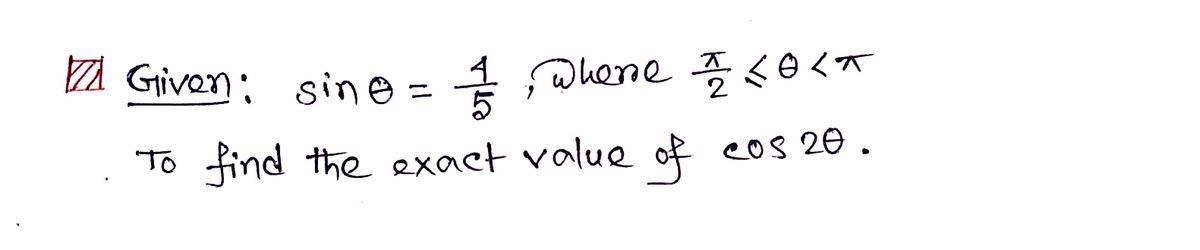 Given: sin θ = 4/5, where π/2 < θ < π
To find the exact value of cos 2θ.